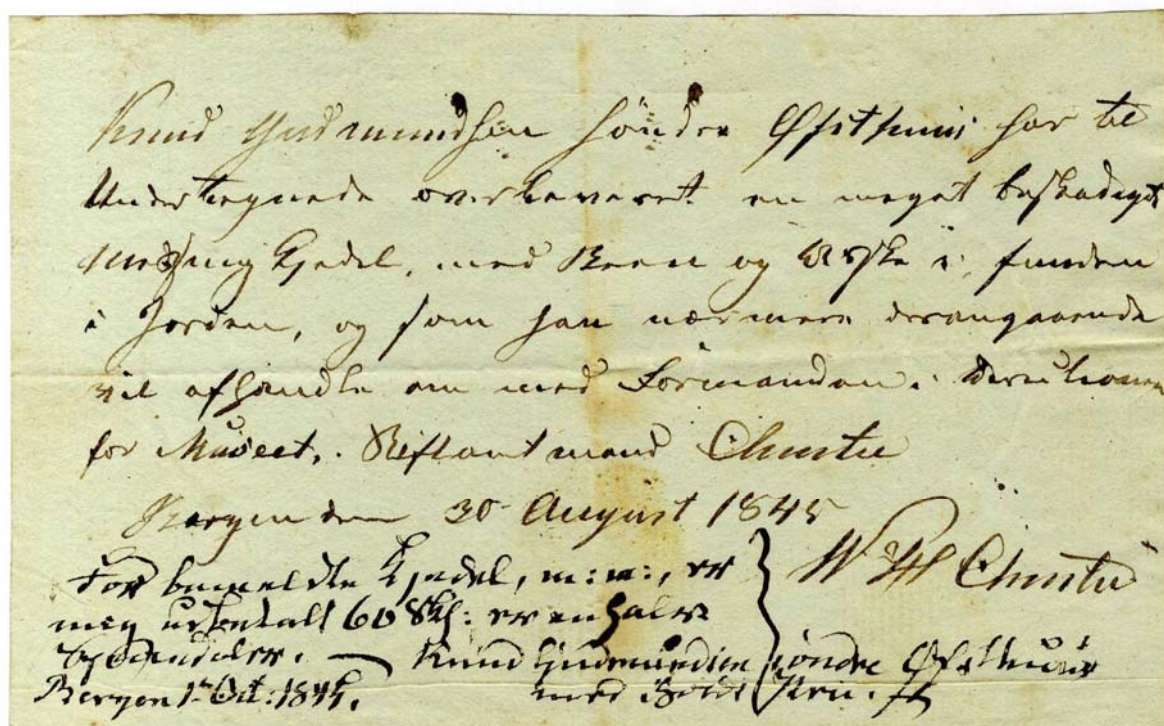 Knud Gudmundsen Søndre Øfsthuus har til
Undertegnede overleveret en meget beskadiget
Messing Kjedel, med Been og Aske i, funden
i Jorden, og som han nærmere desangaaende
vil afhandle om med Formanden i Direktionen
for Museet, Stiftamtmand Christie
Bergen den 30 August 1845
W Christie
For bemeldte Kjedel, m: m:, er
mig udbetalt 60 Skl: er en halv
Speciedaler. — Knud Gudmundsen Søndre Øfsthuus
Bergen 1 Oct: 1845. med Pen.